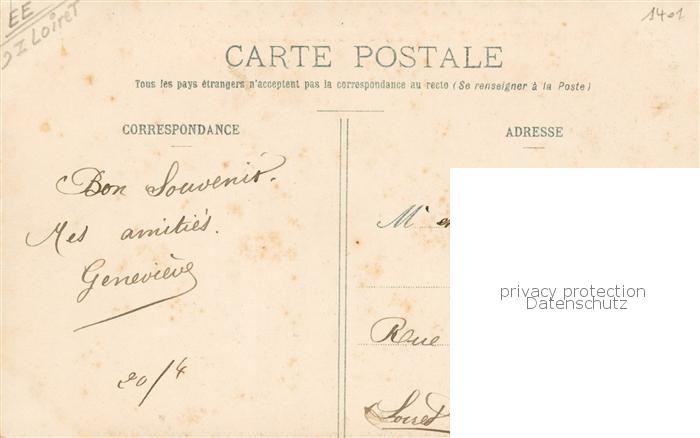 EE
Loiret
1401
CARTE POSTALE
Tous les pays étrangers n'acceptent pas la correspondance au recto (Se renseigner à la Poste)
CORRESPONDANCE
Bon Souvenir.
Mes amitiés.
Geneviève
20/4
ADRESSE
Mr
Rue
Loiret
privacy protection
Datenschutz